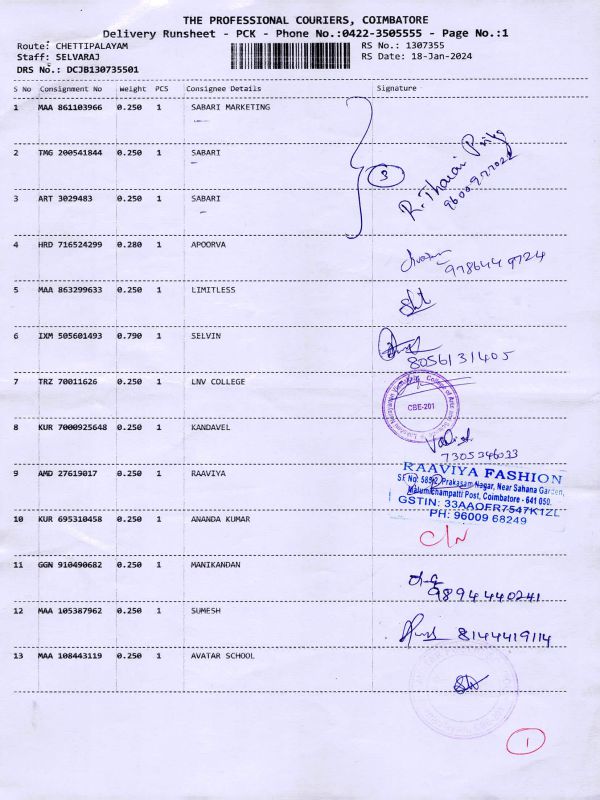 THE PROFESSIONAL COURIERS, COIMBATORE
Delivery Runsheet - PCK - Phone No.:0422-3505555 - Page No.:1
Route: CHETTIPALAYAM RS No.: 1307355
Staff: SELVARAJ RS Date: 18-Jan-2024
DRS No.: DCJB130735501
S No Consignment No Weight PCS Consignee Details Signature
1 MAA 861103966 0.250 1 SABARI MARKETING
2 TMG 200541844 0.250 1 SABARI
3
R. Tharani
3 ART 3029483 0.250 1 SABARI
4 HRD 716524299 0.280 1 APOORVA
9786449724
5 MAA 863299633 0.250 1 LIMITLESS
6 IXM 505601493 0.790 1 SELVIN
8056131405
7 TRZ 70011626 0.250 1 LNV COLLEGE
CBE-201
8 KUR 7000925648 0.250 1 KANDAVEL
7305346033
9 AMD 27619017 0.250 1 RAAVIYA
RAAVIYA FASHION
SF No: 585/2, Prakasam Nagar, Near Sahana Garden,
Malumichampatti Post, Coimbatore - 641 050.
GSTIN: 33AAOFR7547K1ZL
PH: 96009 68249
10 KUR 695310458 0.250 1 ANANDA KUMAR
C/N
11 GGN 910490682 0.250 1 MANIKANDAN
9894440241
12 MAA 105387962 0.250 1 SUMESH
8144419114
13 MAA 108443119 0.250 1 AVATAR SCHOOL
1